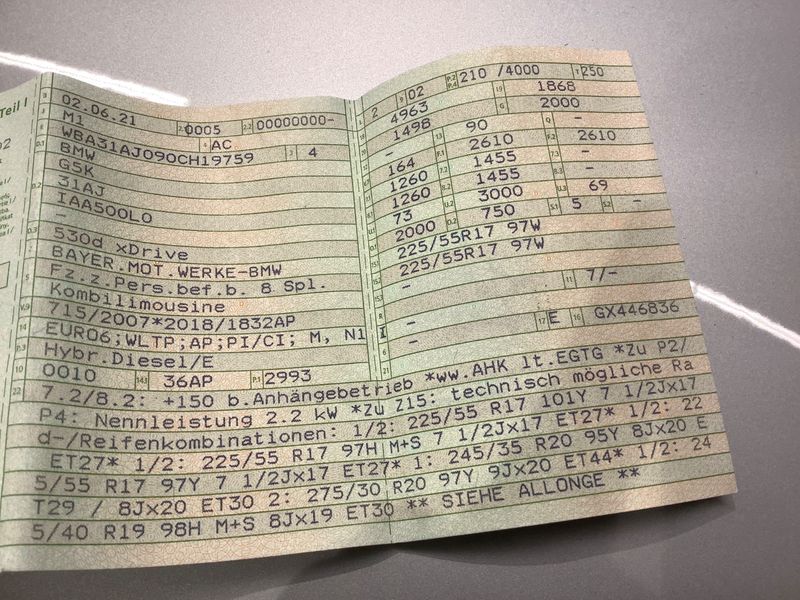 Teil I
02.06.21 0005 00000000-
M1 AC
WBA31AJ090CH19759 4
BMW
G5K
31AJ
IAA500L0
-
530d xDrive
BAYER.MOT.WERKE-BMW
Fz.z.Pers.bef.b. 8 Spl.
Kombilimousine
715/2007*2018/1832AP
EURO6;WLTP;AP;PI/CI; M, N1 I
Hybr.Diesel/E
0010 36AP 2993
2 02 210 /4000 250
4963 1868
1498 2000
- 90 -
164 2610 2610
1260 1455 -
1260 1455 -
73 3000 69
2000 750 5 -
225/55R17 97W
225/55R17 97W
-
7/-
-
- E GX446836
7.2/8.2: +150 b.Anhängebetrieb *ww.AHK lt.EGTG *Zu P2/
P4: Nennleistung 2.2 kW *Zu Z15: technisch mögliche Ra
d-/Reifenkombinationen: 1/2: 225/55 R17 101Y 7 1/2Jx17
ET27* 1/2: 225/55 R17 97H M+S 7 1/2Jx17 ET27* 1/2: 22
5/55 R17 97Y 7 1/2Jx17 ET27* 1: 245/35 R20 95Y 8Jx20 E
T29 / 8Jx20 ET30 2: 275/30 R20 97Y 9Jx20 ET44* 1/2: 24
5/40 R19 98H M+S 8Jx19 ET30 ** SIEHE ALLONGE **